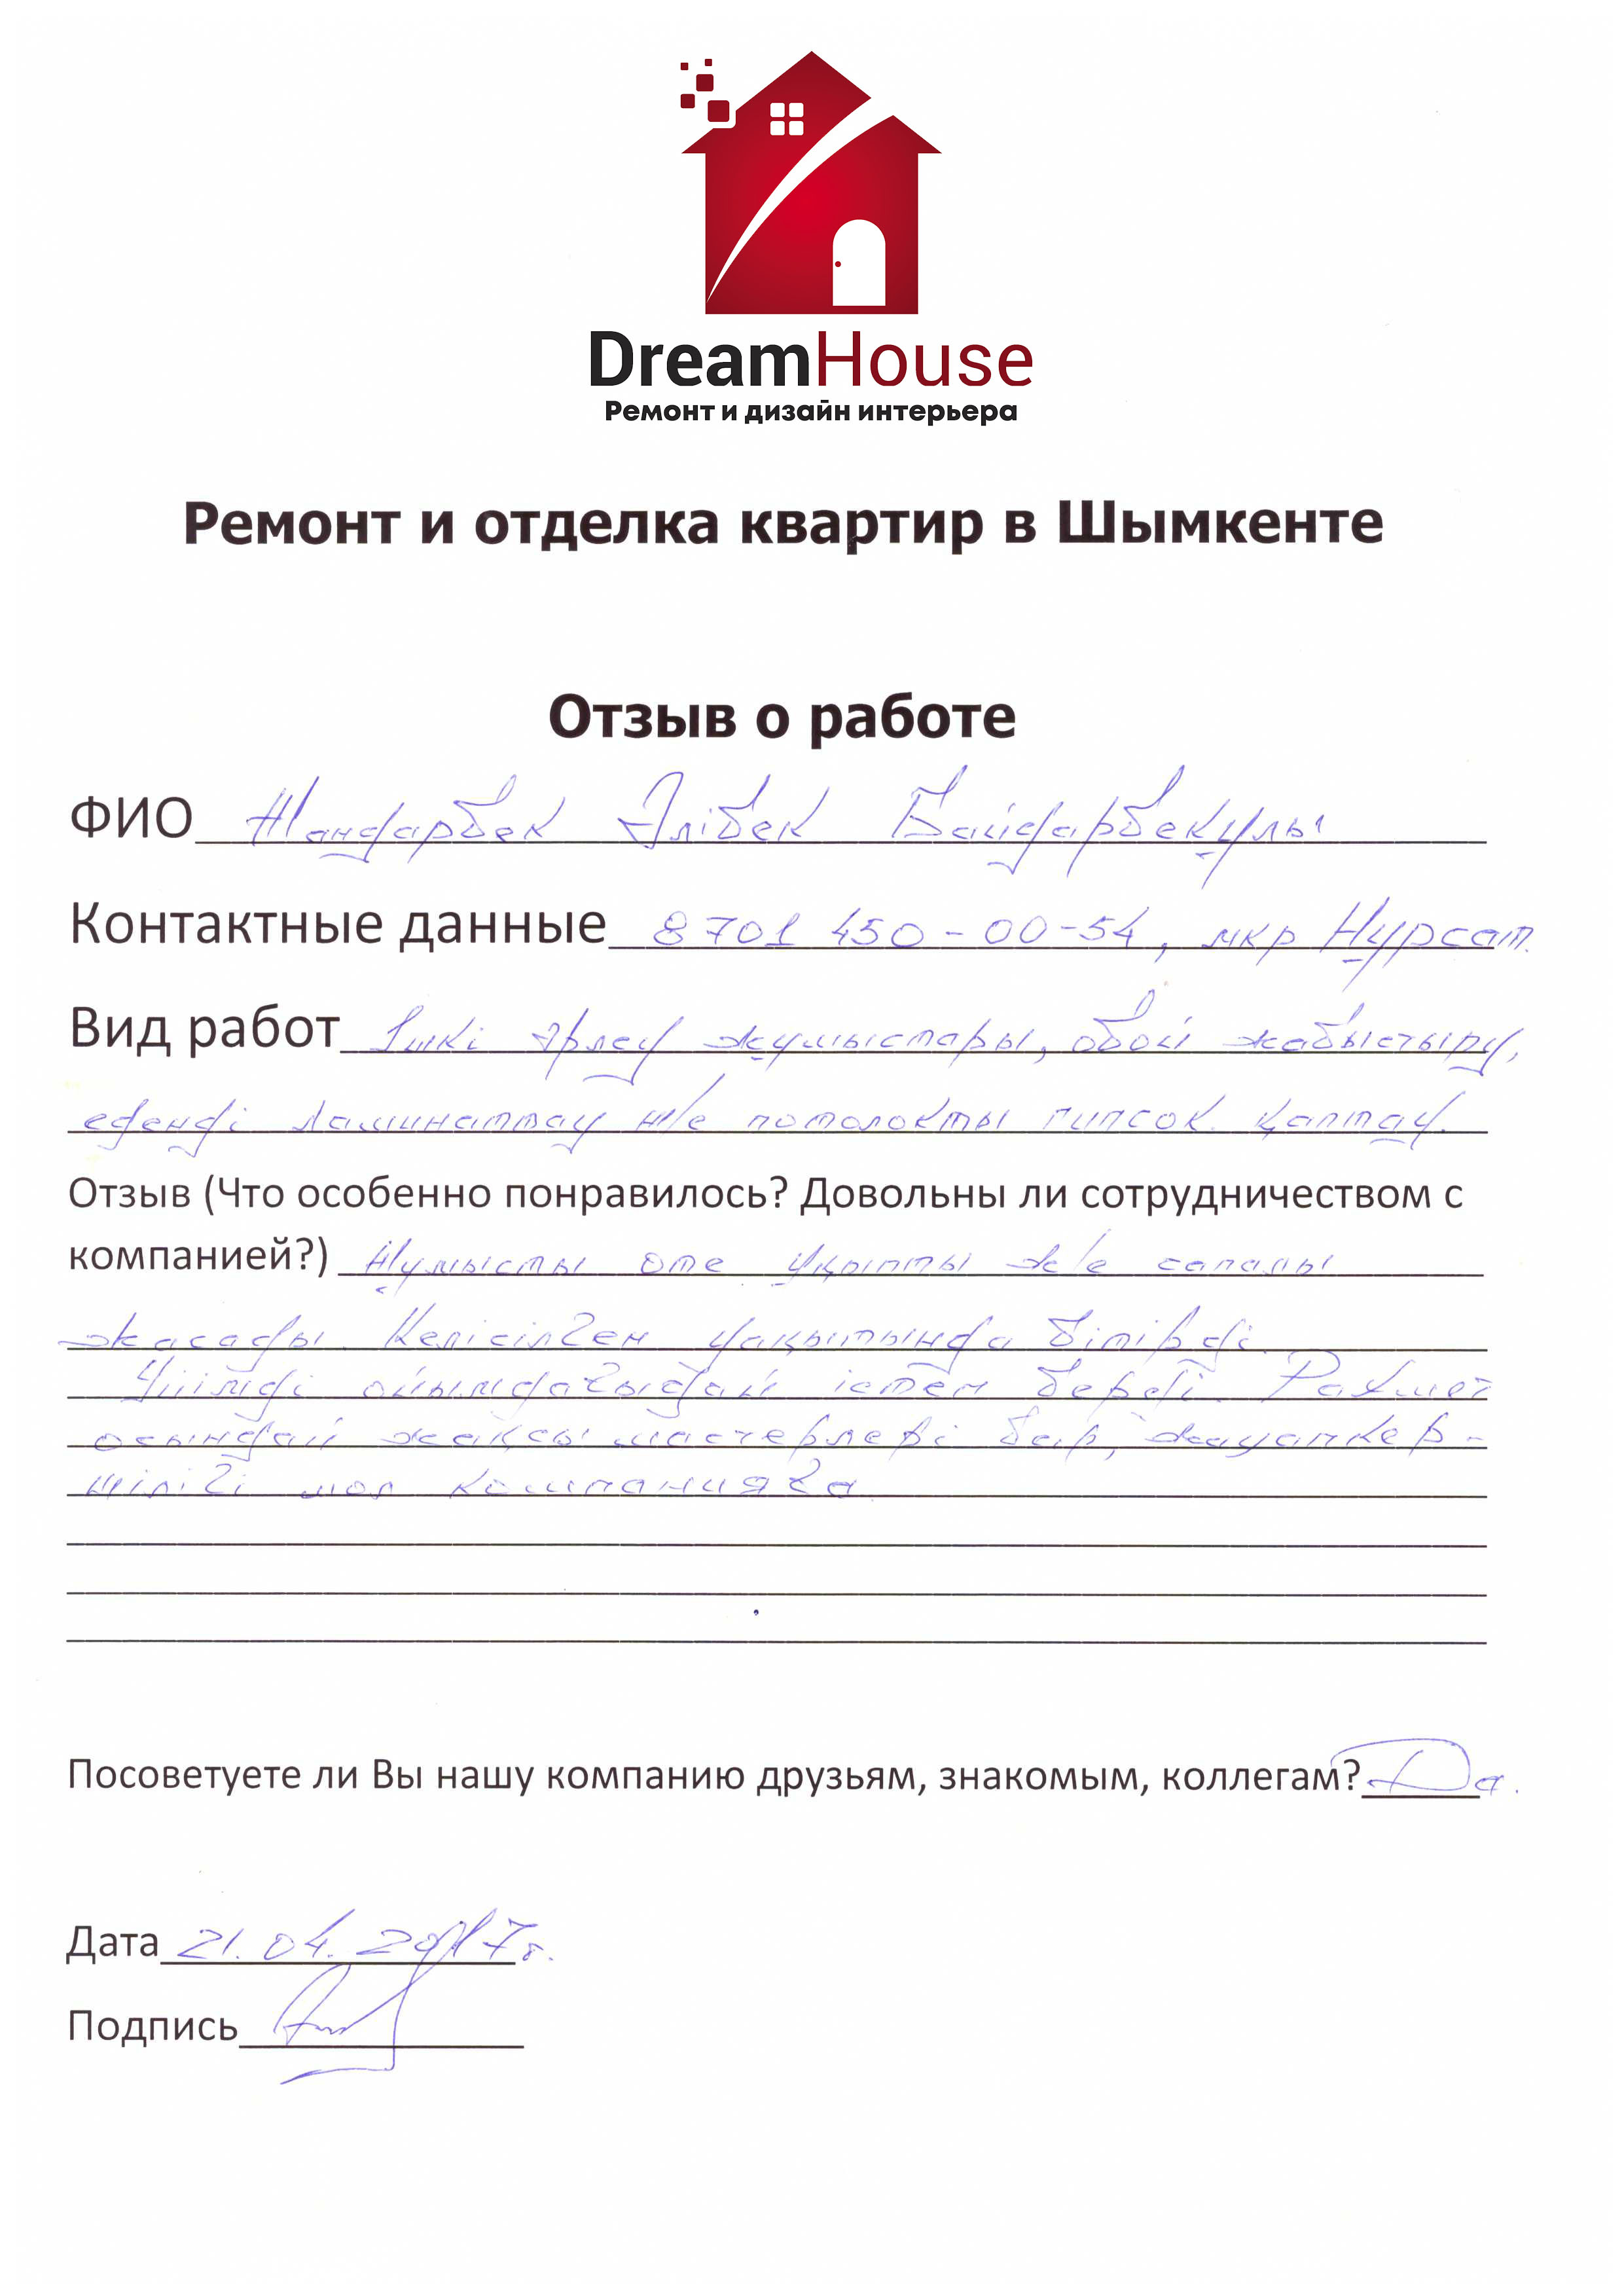 DreamHouse
Ремонт и дизайн интерьера
Ремонт и отделка квартир в Шымкенте
Отзыв о работе
ФИО Жандарбек Әлібек Байдарбекұлы
Контактные данные 8 701 450-00-54, мкр Нұрсат.
Вид работ Ішкі әрлеу жұмыстары, обой жабыстыру,
еденді ламинаттау ж/е потолокты гипсок. қаптау.
Отзыв (Что особенно понравилось? Довольны ли сотрудничеством с
компанией?) Жұмысты өте ұқыпты ж/е сапалы
жасады. Келісілген уақытында бітірді.
Үйімді ойымдағыдай істеп берді. Рахмет
осындай жақсы мастерлері бар, жауапкер-
шілігі мол компанияға
Посоветуете ли Вы нашу компанию друзьям, знакомым, коллегам? Да.
Дата 21.04.2017г.
Подпись